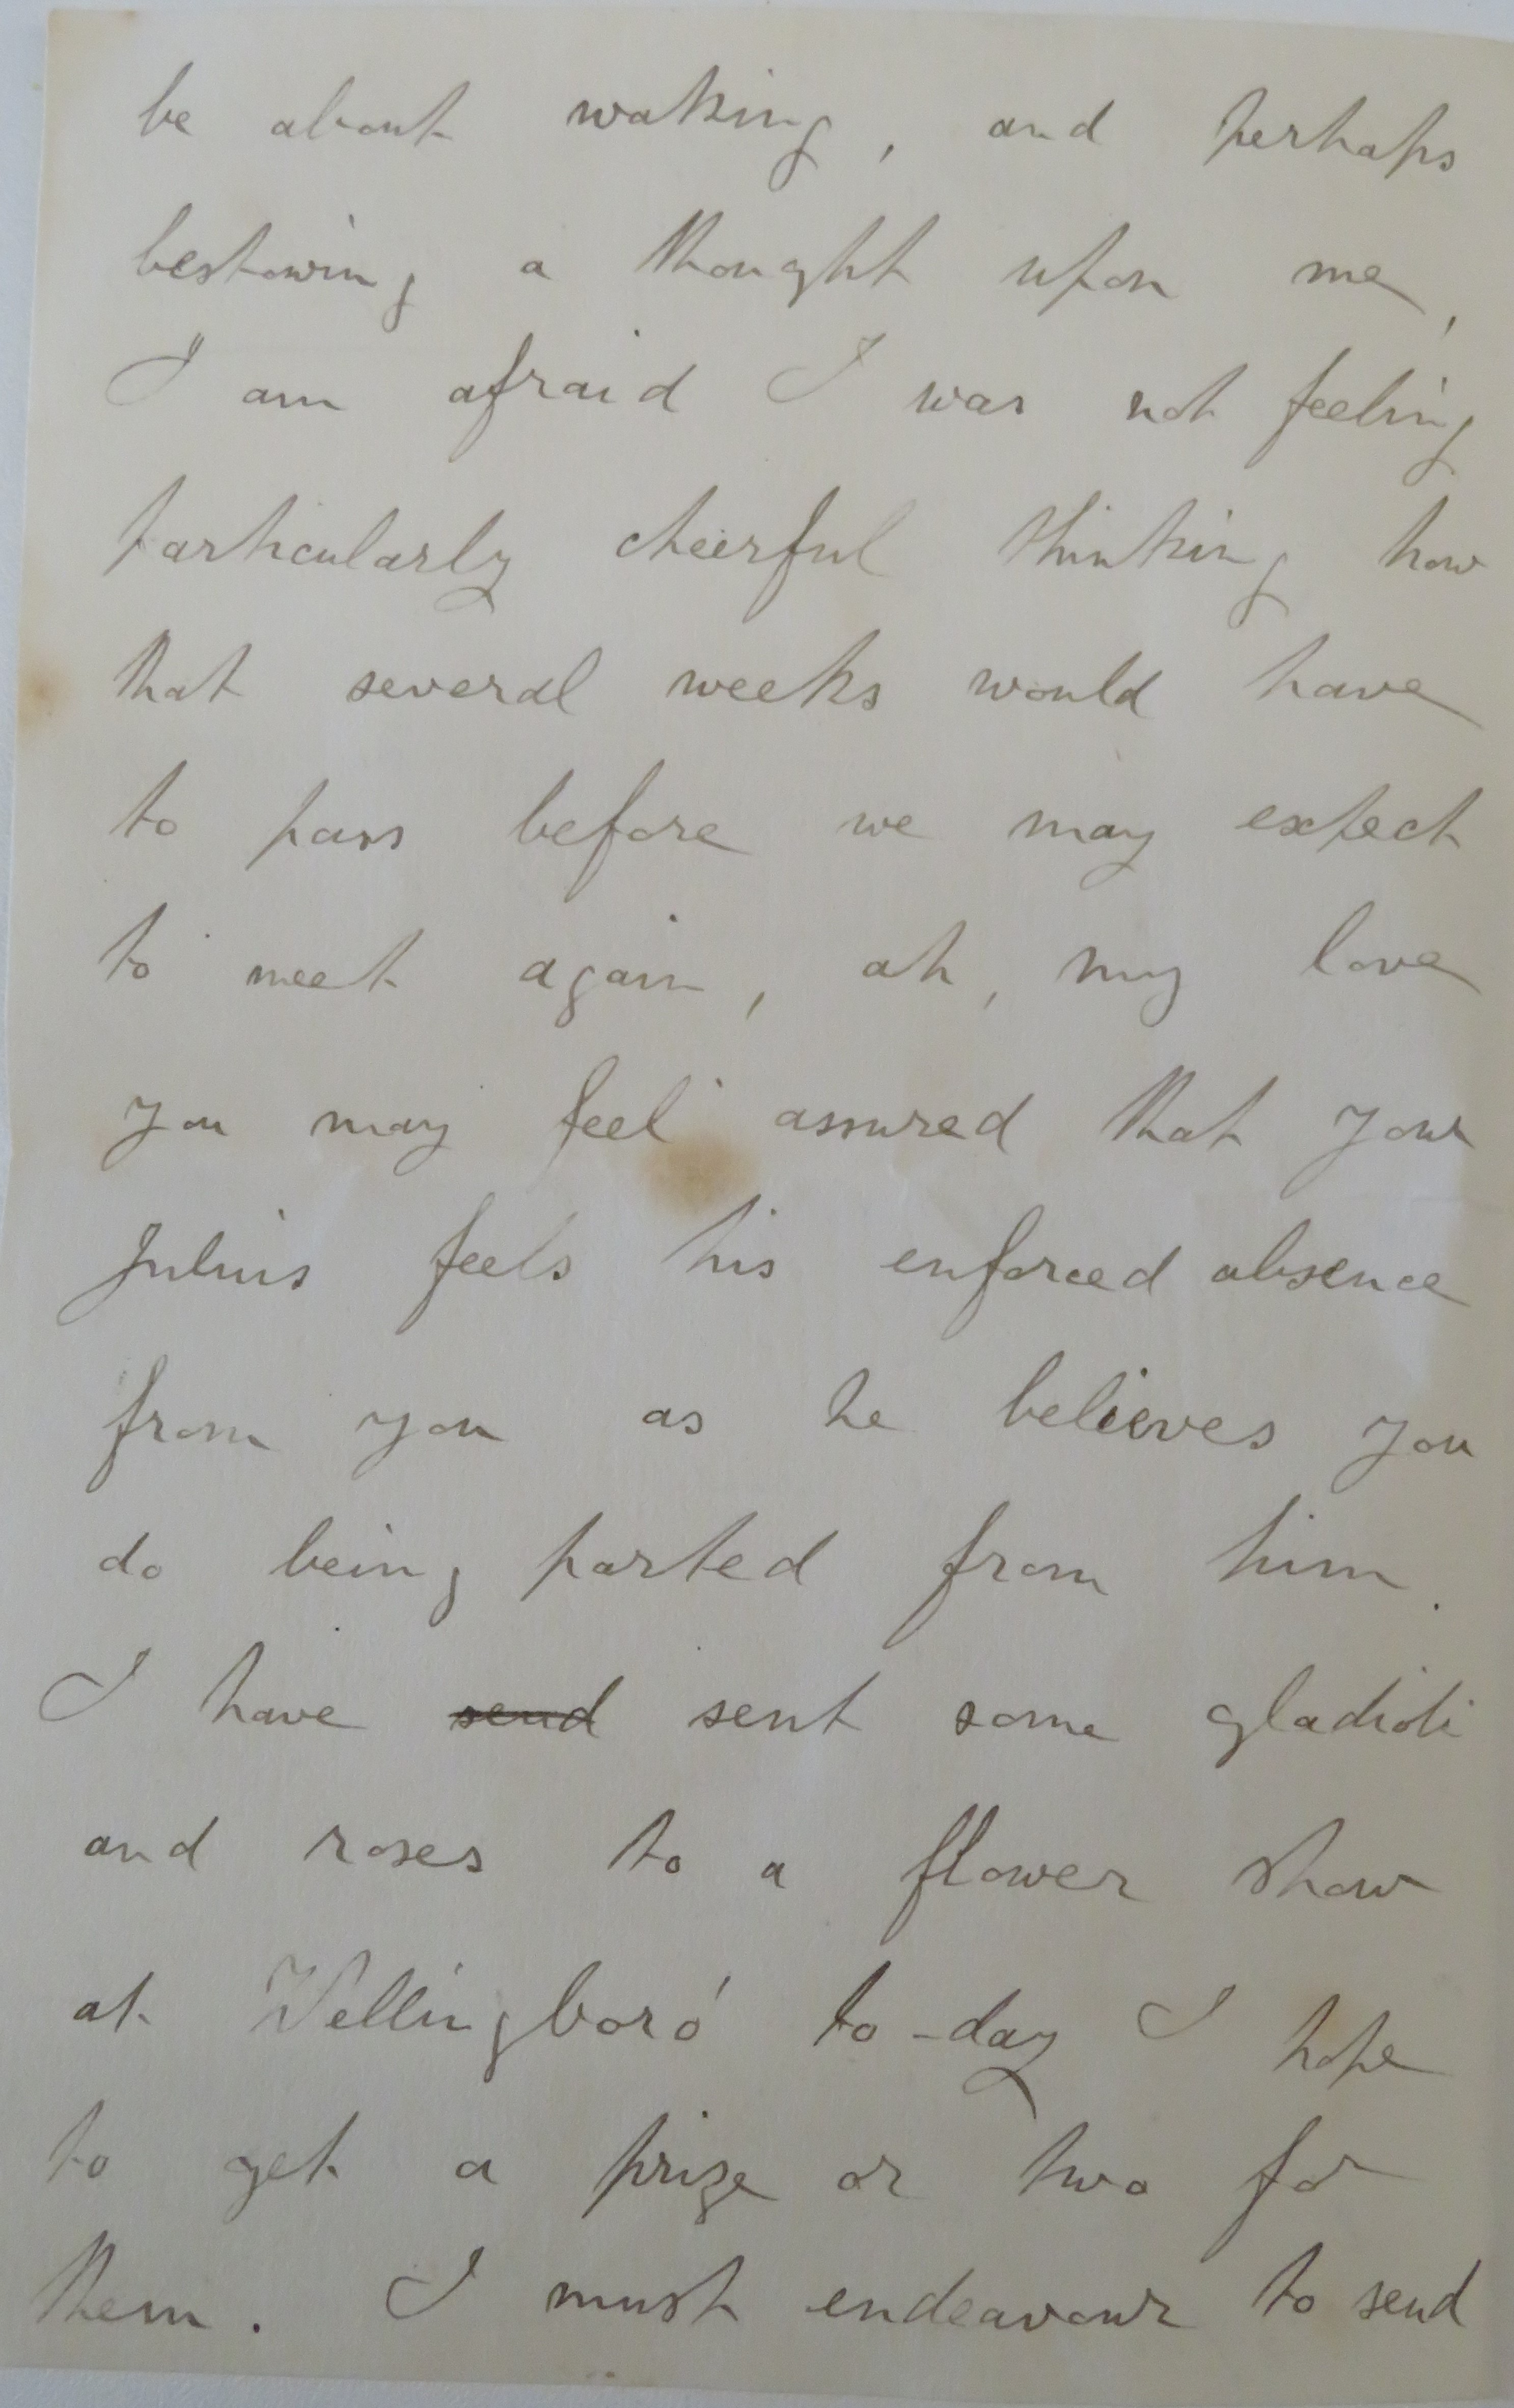 be about waking, and perhaps
bestowing a thought upon me,
I am afraid I was not feeling
particularly cheerful thinking how
that several weeks would have
to pass before we may expect
to meet again, ah, my love
you may feel assured that your
Julius feels his enforced absence
from you as he believes you
do being parted from him.
I have send sent some gladioli
and roses to a flower show
at Wellingboro' to-day I hope
to get a prize or two for
them. I must endeavour to send